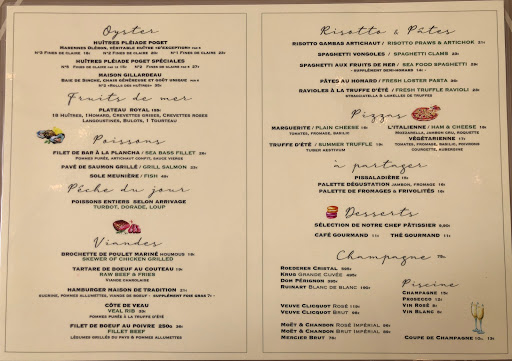 Oyster
HUÎTRES PLÉIADE POGET
MARENNES OLÉRON, VÉRITABLE HUÎTRE «D'EXCEPTION» PAR 6
N°2 FINES DE CLAIRE 23€ N°3 FINES DE CLAIRE 20€
HUÎTRES PLÉIADE POGET SPÉCIALES
MAISON GILLARDEAU
BAIE DE SINCHE, CHAIR GÉNÉREUSE ET GOÛT UNIQUE PAR 6
N°2 «ROLLS DES HUÎTRES»
Fruits de mer
PLATEAU ROYAL
18 HUÎTRES, 1 HOMARD, CREVETTES GRISES, CREVETTES ROSES
LANGOUSTINES, BULOTS, 1 TOURTEAU
Poissons
FILET DE BAR À LA PLANCHA / SEA BASS FILLET
POMMES PURÉE, ARTICHAUT CONFIT, SAUCE VIERGE
PAVÉ DE SAUMON GRILLÉ / GRILL SALMON
SOLE MEUNIÈRE / FISH
Pêche du jour
POISSONS ENTIERS SELON ARRIVAGE
TURBOT, DORADE, LOUP
Viandes
BROCHETTE DE POULET MARINÉ HOUMOUS 19€
SKEWER OF CHICKEN GRILLED
TARTARE DE BOEUF AU COUTEAU 19€
RAW BEEF & FRIES
VIANDE CHAROLAISE
HAMBURGER MAISON DE TRADITION 21€
SUCRINE, POMMES ALLUMETTES, VIANDE DE BOEUF - SUPPLÉMENT FOIE GRAS 7€ -
CÔTE DE VEAU
VEAL RIB
POMMES PURÉE À LA TRUFFE D'ÉTÉ
FILET DE BOEUF AU POIVRE 250G
FILLET BEEF
LÉGUMES GRILLÉS OU PAYS & POMMES ALLUMETTES
Risotto & Pâtes
RISOTTO GAMBAS ARTICHAUT / RISOTTO PRAWS & ARTICHOK 21€
SPAGHETTI VONGOLES / SPAGHETTI CLAMS
SPAGHETTI AUX FRUITS DE MER / SEA FOOD SPAGHETTI
- SUPPLÉMENT DEMI-HOMARD 14€ -
PÂTES AU HOMARD / FRESH LOBSTER PASTA
RAVIOLES À LA TRUFFE D'ÉTÉ / FRESH TRUFFLE RAVIOLI
STRACCIATELLA & LAMELLES DE TRUFFES
Pizzas
MARGUERITE / PLAIN CHEESE
TOMATES, FROMAGE, BASILIC
TRUFFE D'ÉTÉ / SUMMER TRUFFLE 19€
TUBER AESTIVUM
L'ITALIENNE / HAM & CHEESE
MOZZARELLA, JAMBON CRU, ROQUETTE
VÉGÉTARIENNE
TOMATES, FROMAGE, BASILIC, POIVRONS
COURGETTE, AUBERGINE
à partager
PISSALADIÈRE
PALETTE DÉGUSTATION JAMBON, FROMAGE
PALETTE DE FROMAGES & FRIVOLITÉS
Desserts
SÉLECTION DE NOTRE CHEF PÂTISSIER
CAFÉ GOURMAND 11€ THÉ GOURMAND 11€
Champagne
ROEDERER CRISTAL
KRUG GRANDE CUVÉE
DOM PÉRIGNON
RUINART BLANC DE BLANC
VEUVE CLICQUOT ROSÉ
VEUVE CLICQUOT BRUT
MOËT & CHANDON ROSÉ IMPÉRIAL
MOËT & CHANDON BRUT IMPÉRIAL
MERCIER BRUT
Piscine
CHAMPAGNE
PROSECCO
VIN ROSÉ
VIN BLANC
COUPE DE CHAMPAGNE